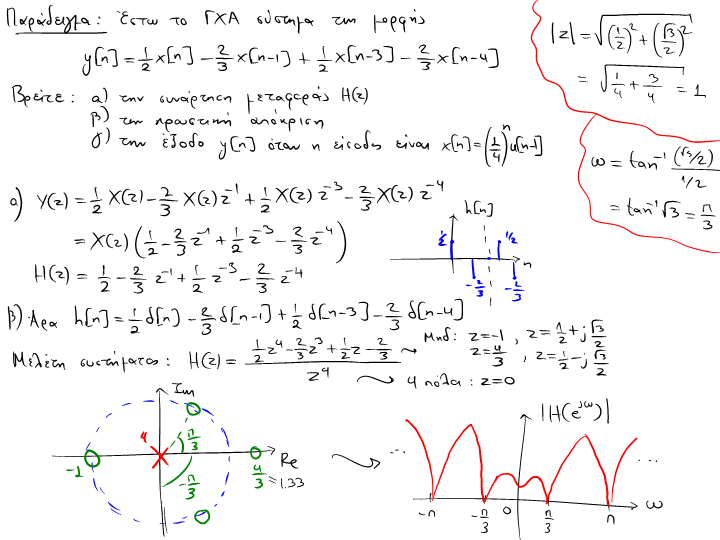 Παράδειγμα: Έστω το ΓΧΑ σύστημα της μορφής
y[n] = 1/2 x[n] - 2/3 x[n-1] + 1/2 x[n-3] - 2/3 x[n-4]
Βρείτε: α) την συνάρτηση μεταφοράς H(z)
β) την κρουστική απόκριση
γ) την έξοδο y[n] όταν η είσοδος είναι x[n] = (1/4)^n u[n-1]
|z| = √((1/2)² + (√3/2)²)
= √(1/4 + 3/4) = 1
ω = tan⁻¹ (√3/2)/(1/2)
= tan⁻¹ √3 = π/3
α) Y(z) = 1/2 X(z) - 2/3 X(z) z⁻¹ + 1/2 X(z) z⁻³ - 2/3 X(z) z⁻⁴
= X(z) (1/2 - 2/3 z⁻¹ + 1/2 z⁻³ - 2/3 z⁻⁴)
H(z) = 1/2 - 2/3 z⁻¹ + 1/2 z⁻³ - 2/3 z⁻⁴
h[n]
1/2
1/2
n
-2/3
-2/3
β) Άρα h[n] = 1/2 δ[n] - 2/3 δ[n-1] + 1/2 δ[n-3] - 2/3 δ[n-4]
Μελέτη συστήματος: H(z) = (1/2 z⁴ - 2/3 z³ + 1/2 z - 2/3) / z⁴
Μηδ: z=-1, z=1/2+j√3/2
z=4/3, z=1/2-j√3/2
4 πόλοι: z=0
Im
4
π/3
-π/3
-1
Re
4/3 = 1.33
|H(e^jω)|
...
...
-π
-π/3
0
π/3
π
ω